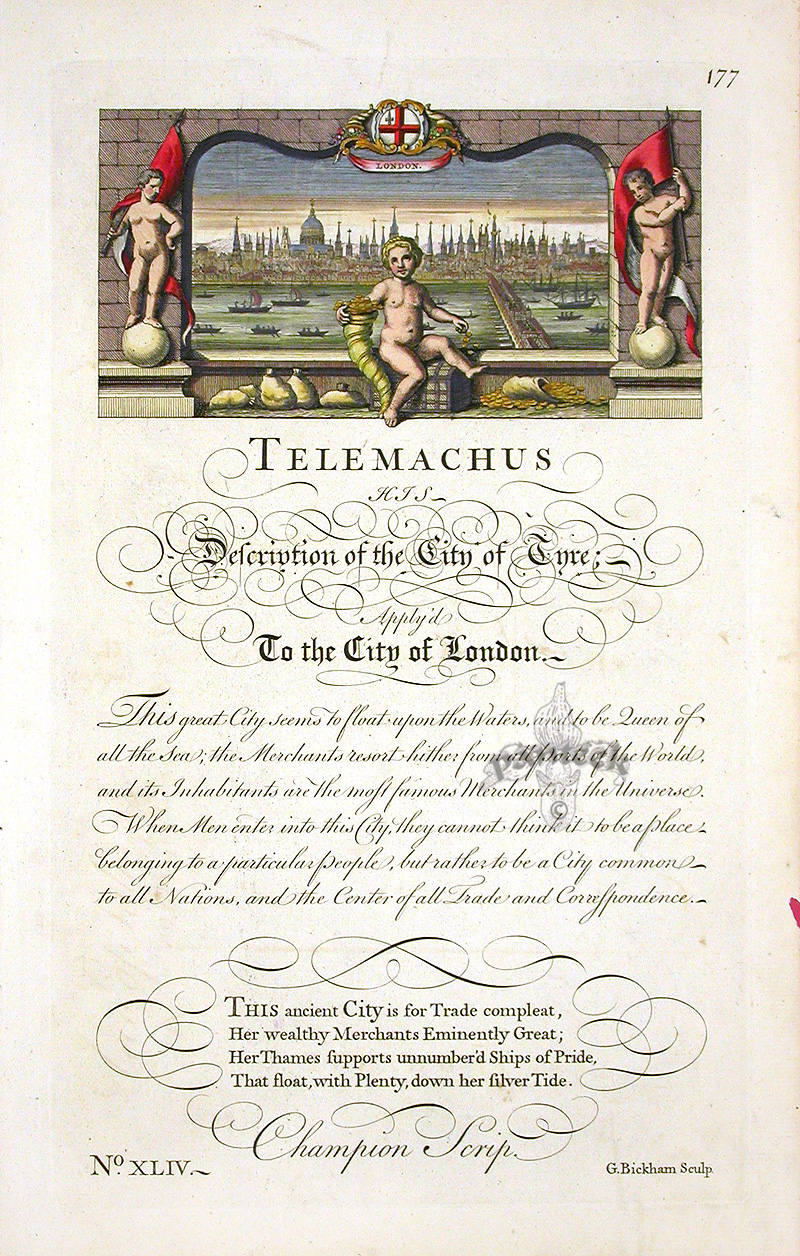 177
LONDON.
TELEMACHUS
HIS
Deſcription of the City of Tyre;
Apply'd
To the City of London.
This great City seems to float upon the Waters, and to be Queen of
all the Sea; the Merchants resort hither from all Parts of the World,
and its Inhabitants are the moſt famous Merchants in the Universe.
When Men enter into this City, they cannot think it to be a place
belonging to a particular people, but rather to be a City common
to all Nations, and the Center of all Trade and Correſpondence.
THIS ancient City is for Trade compleat,
Her wealthy Merchants Eminently Great;
Her Thames ſupports unnumber'd Ships of Pride,
That float, with Plenty, down her ſilver Tide.
Champion Scrip.
No. XLIV.
G. Bickham Sculp.
©